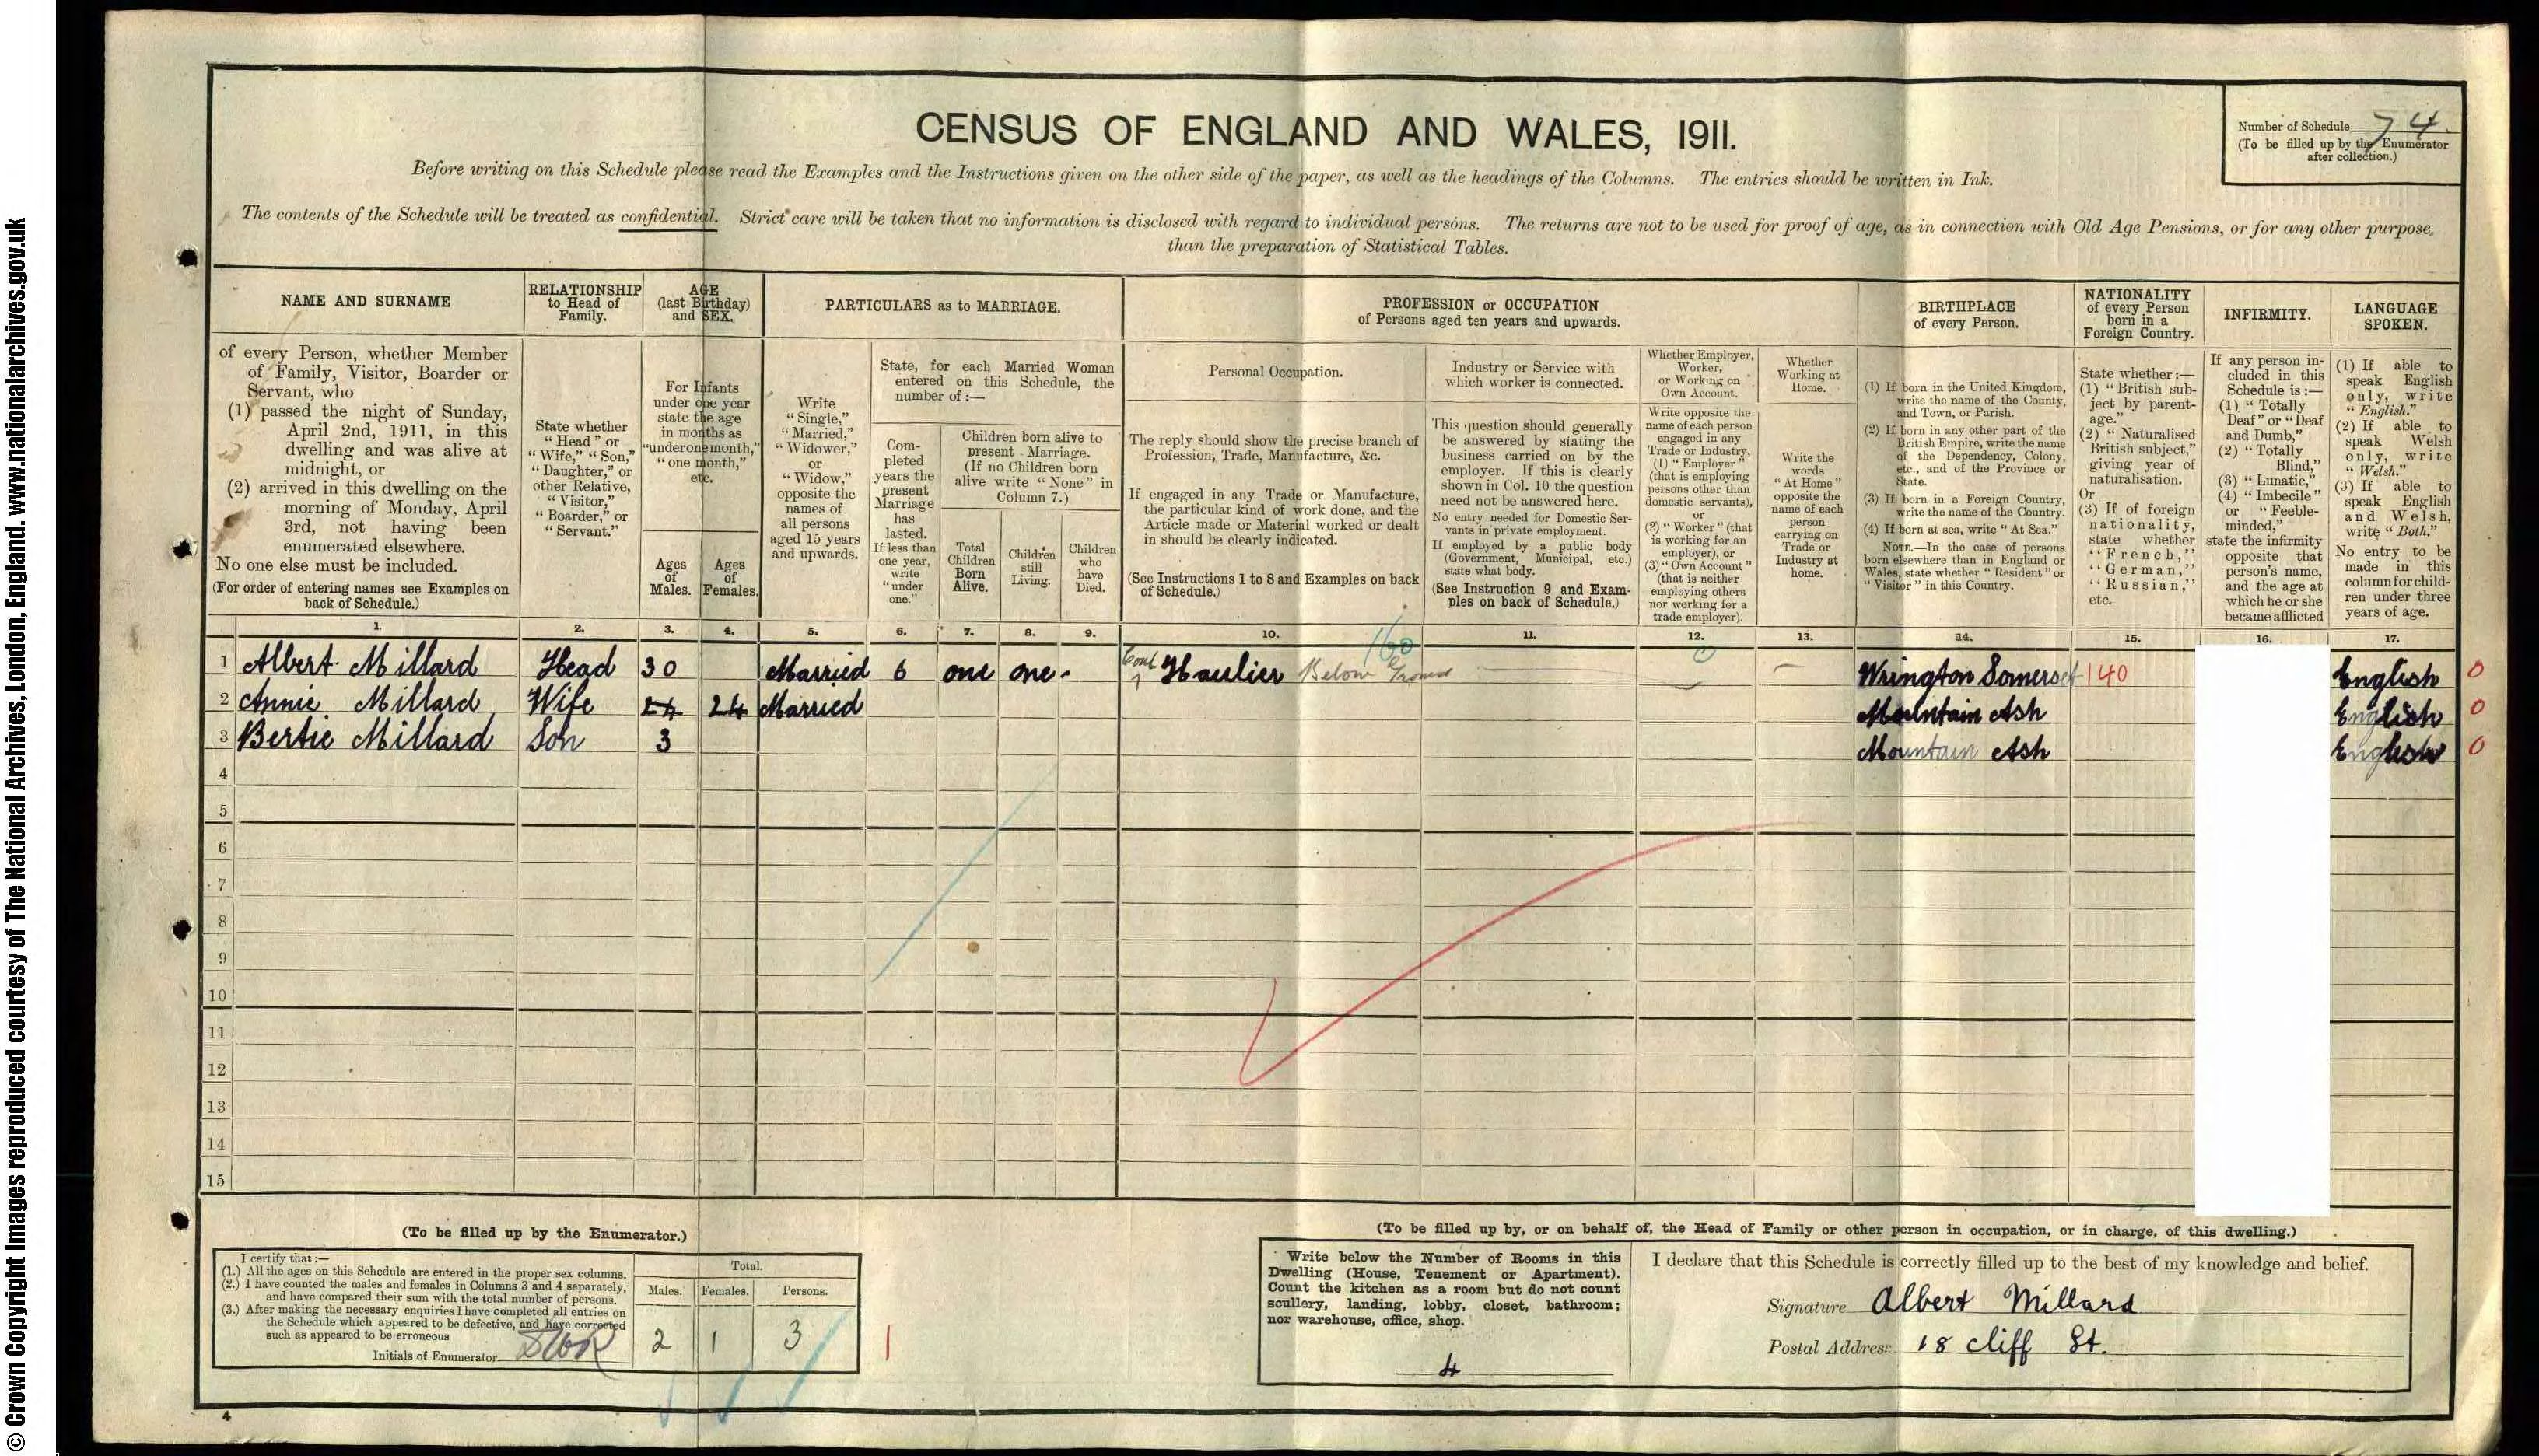 © Crown Copyright Images reproduced courtesy of The National Archives, London, England. www.nationalarchives.gov.uk
CENSUS OF ENGLAND AND WALES, 1911.
Number of Schedule 74.
(To be filled up by the Enumerator
after collection.)
Before writing on this Schedule please read the Examples and the Instructions given on the other side of the paper, as well as the headings of the Columns. The entries should be written in Ink.
The contents of the Schedule will be treated as confidential. Strict care will be taken that no information is disclosed with regard to individual persons. The returns are not to be used for proof of age, as in connection with Old Age Pensions, or for any other purpose,
than the preparation of Statistical Tables.
NAME AND SURNAME
of every Person, whether Member
of Family, Visitor, Boarder or
Servant, who
(1) passed the night of Sunday,
April 2nd, 1911, in this
dwelling and was alive at
midnight, or
(2) arrived in this dwelling on the
morning of Monday, April
3rd, not having been
enumerated elsewhere.
No one else must be included.
(For order of entering names see Examples on
back of Schedule.)
RELATIONSHIP
to Head of
Family.
State whether
"Head" or
"Wife," "Son,"
"Daughter," or
other Relative,
"Visitor,"
"Boarder," or
"Servant."
AGE
(last Birthday)
and SEX.
For Infants
under one year
state the age
in months as
"under one month,"
"one month,"
etc.
Ages
of
Males.
Ages
of
Females.
PARTICULARS as to MARRIAGE.
Write
"Single,"
"Married,"
"Widower,"
or
"Widow,"
opposite the
names of
all persons
aged 15 years
and upwards.
State, for each Married Woman
entered on this Schedule, the
number of :—
Com-
pleted
years the
present
Marriage
has
lasted.
If less than
one year,
write
"under
one."
Children born alive to
present Marriage.
(If no Children born
alive write "None" in
Column 7.)
Total
Children
Born
Alive.
Children
still
Living.
Children
who
have
Died.
PROFESSION or OCCUPATION
of Persons aged ten years and upwards.
Personal Occupation.
The reply should show the precise branch of
Profession, Trade, Manufacture, &c.
If engaged in any Trade or Manufacture,
the particular kind of work done, and the
Article made or Material worked or dealt
in should be clearly indicated.
(See Instructions 1 to 8 and Examples on back
of Schedule.)
Industry or Service with
which worker is connected.
This question should generally
be answered by stating the
business carried on by the
employer. If this is clearly
shown in Col. 10 the question
need not be answered here.
No entry needed for Domestic Ser-
vants in private employment.
If employed by a public body
(Government, Municipal, etc.)
state what body.
(See Instruction 9 and Exam-
ples on back of Schedule.)
Whether Employer,
Worker,
or Working on
Own Account.
Write opposite the
name of each person
engaged in any
Trade or Industry,
(1) "Employer"
(that is employing
persons other than
domestic servants),
or
(2) "Worker" (that
is working for an
employer), or
(3) "Own Account"
(that is neither
employing others
nor working for a
trade employer).
Whether
Working at
Home.
Write the
words
"At Home"
opposite the
name of each
person
carrying on
Trade or
Industry at
home.
BIRTHPLACE
of every Person.
(1) If born in the United Kingdom,
write the name of the County,
and Town, or Parish.
(2) If born in any other part of the
British Empire, write the name
of the Dependency, Colony,
etc., and of the Province or
State.
(3) If born in a Foreign Country,
write the name of the Country.
(4) If born at sea, write "At Sea."
NOTE.—In the case of persons
born elsewhere than in England or
Wales, state whether "Resident" or
"Visitor" in this Country.
NATIONALITY
of every Person
born in a
Foreign Country.
State whether :—
(1) "British sub-
ject by parent-
age."
(2) "Naturalised
British subject,"
giving year of
naturalisation.
Or
(3) If of foreign
nationality,
state whether
"French,"
"German,"
"Russian,"
etc.
INFIRMITY.
If any person in-
cluded in this
Schedule is :—
(1) "Totally
Deaf" or "Deaf
and Dumb,"
(2) "Totally
Blind,"
(3) "Lunatic,"
(4) "Imbecile"
or "Feeble-
minded,"
state the infirmity
opposite that
person's name,
and the age at
which he or she
became afflicted
LANGUAGE
SPOKEN.
(1) If able to
speak English
only, write
"English."
(2) If able to
speak Welsh
only, write
"Welsh."
(3) If able to
speak English
and Welsh,
write "Both."
No entry to be
made in this
column for child-
ren under three
years of age.
1. 2. 3. 4. 5. 6. 7. 8. 9. 10. 11. 12. 13. 14. 15. 16. 17.
160
1 Albert Millard Head 30 Married 6 one one - Coal Haulier Below Ground Wrington Somerset 140 English 0
2 Annie Millard Wife 24 24 Married Mountain Ash English 0
3 Bertie Millard Son 3 Mountain Ash English 0
4
5
6
7
8
9
10
11
12
13
14
15
(To be filled up by the Enumerator.)
I certify that :—
(1.) All the ages on this Schedule are entered in the proper sex columns.
(2.) I have counted the males and females in Columns 3 and 4 separately,
and have compared their sum with the total number of persons.
(3.) After making the necessary enquiries I have completed all entries on
the Schedule which appeared to be defective, and have corrected
such as appeared to be erroneous
Initials of Enumerator
Total.
Males. Females. Persons.
2 1 3
1
(To be filled up by, or on behalf of, the Head of Family or other person in occupation, or in charge, of this dwelling.)
Write below the Number of Rooms in this
Dwelling (House, Tenement or Apartment).
Count the kitchen as a room but do not count
scullery, landing, lobby, closet, bathroom;
nor warehouse, office, shop.
4
I declare that this Schedule is correctly filled up to the best of my knowledge and belief.
Signature Albert Millard
Postal Address 18 Cliff St.
4